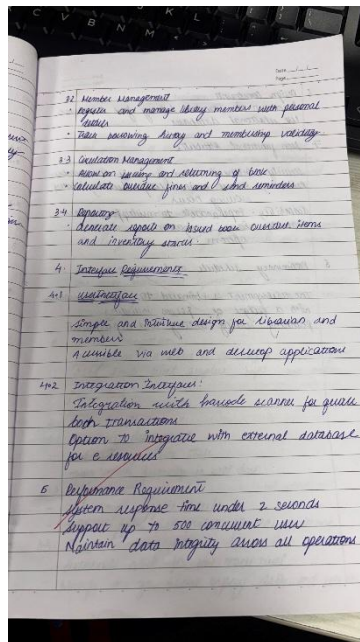 Date __/__/__
Page
3.2 Member Management
• register and manage library members with personal
details
• Track borrowing history and membership validity
3.3 Circulation Management
• Allow on issuing and returning of book
• calculate overdue fines and send reminders
3.4 Reporting
• Generate reports on issued book overdue items
and inventory status.
4. Interface Requirements
4.1 User Interface
Simple and Intuitive design for librarian and
members
Accessible via web and desktop applications
4.2 Integration Interface:
Integration with barcode scanner for
book transactions
Option to integrate with external database
for e resources
5 Performance Requirement
System response time under 2 seconds
Support up to 500 concurrent users
Maintain data integrity across all operations